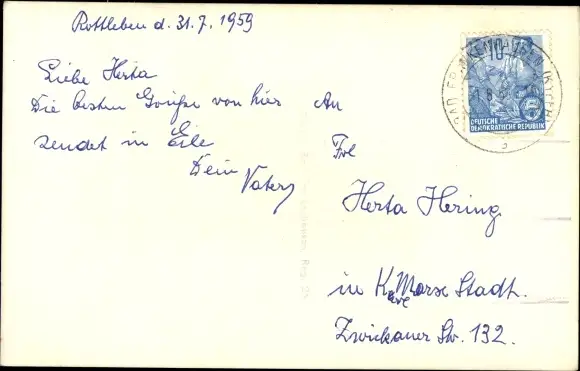 Rottleben d. 31.7.1959
Liebe Herta
Die besten Grüße von hier
sendet in Eile
Dein Vater
10
DEUTSCHE
DEMOKRATISCHE REPUBLIK
BAD FRANKENHAUSEN (KYFFH)
An
Frl
Herta Hering
in Karl Marx Stadt.
Zwickauer Str. 132.